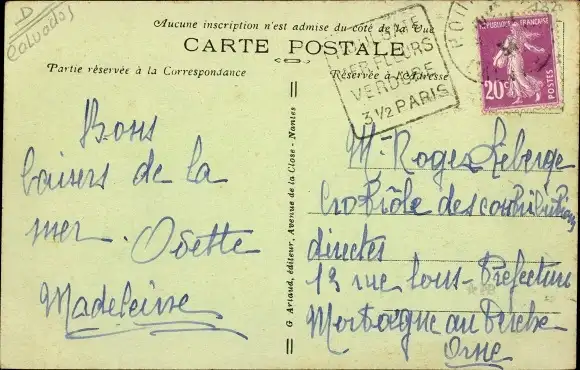 D
Calvados
Aucune inscription n'est admise du côté de la Vue
CARTE POSTALE
Partie réservée à la Correspondance
Réservée à l'Adresse
MER FLEURS
VERDURE
3 1/2 PARIS
RÉPUBLIQUE FRANÇAISE
20c
POSTES
Bons
baisers de la
mer. Odette
Madeleine
G. Artaud, éditeur, Avenue de la Close - Nantes
Mr Roger Leberge
Contrôle des contributions
directes
13 rue Sous-Préfecture
Mortagne au Perche
Orne